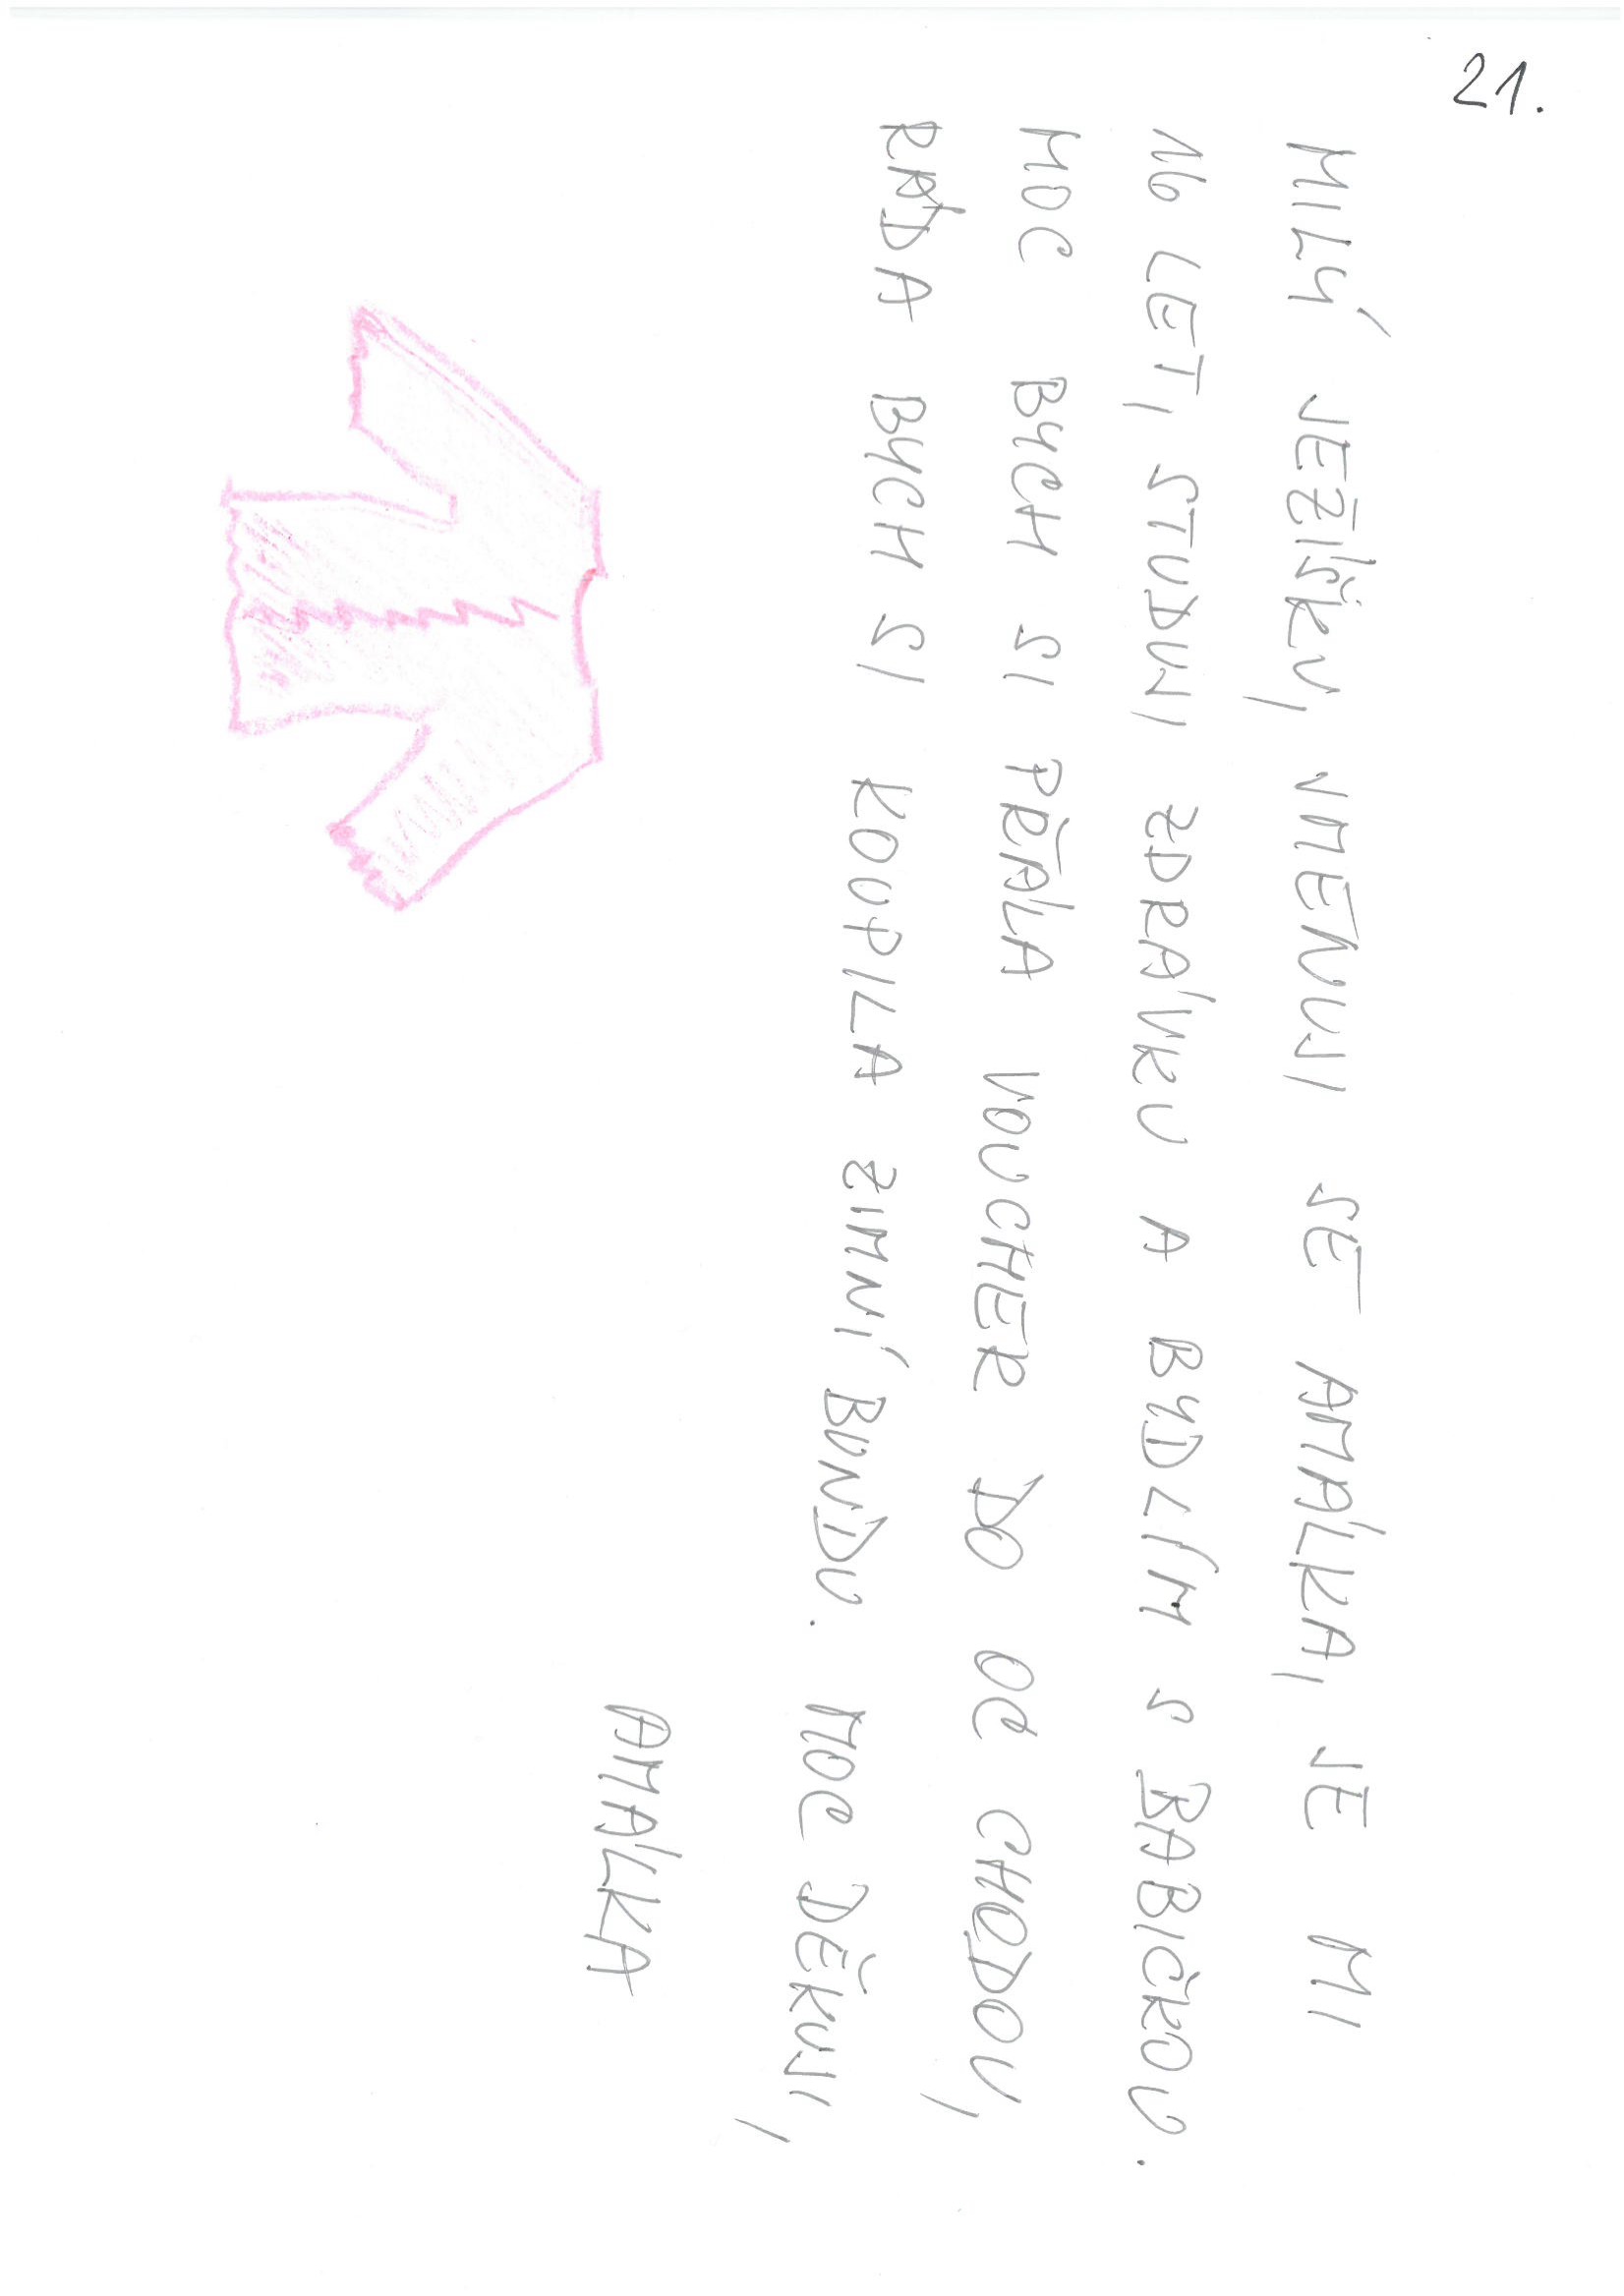 21.
MILÝ JEŽÍŠKU, JMENUJI SE AMÁLKA, JE MI
16 LET, STUDUJI ZDRÁVKU A BYDLÍM S BABIČKOU.
MOC BYCH SI PŘÁLA VOUCHER DO OC CHODOV,
RÁDA BYCH SI KOUPILA ZIMNÍ BUNDU. MOC DĚKUJI,
AMÁLKA